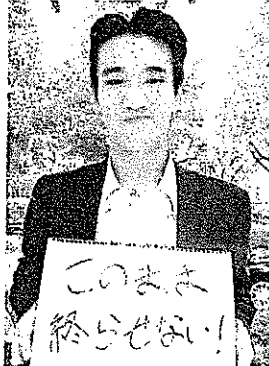 このまま
終らせない!